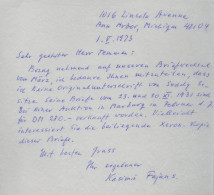 1016 Lincoln Avenue
Ann Arbor, Michigan 48104
8. II. 1973
Sehr geehrter Herr Demmer:
Bezug nehmend auf unseren Briefwechsel
vom März, ich bedaure Ihnen mitzuteilen, dass
ich keine Originalunterschrift von Soddy be-
sitze. Seine Briefe vom 23. und 30. 1931 sind
bei einer Auktion in Marburg im Februar d. J.
für DM 280.- verkauft worden. Vielleicht
interessiert Sie die beiliegende Xerox-Kopie
dieser Briefe.
Mit besten Gruss
Ihr ergebener
Kasimir Fajans